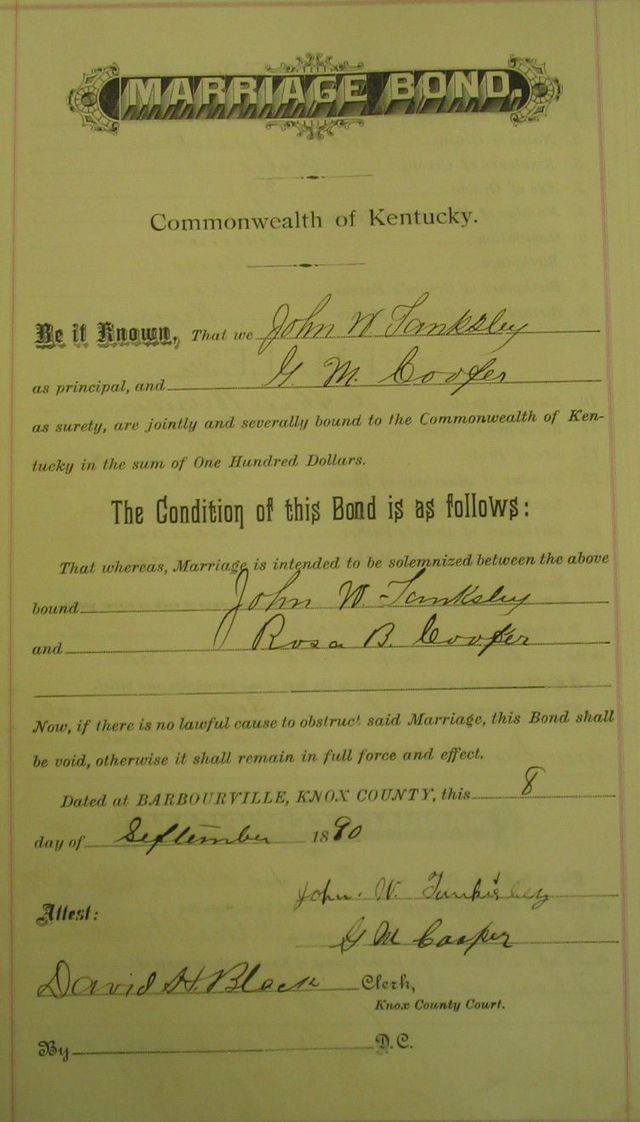 MARRIAGE BOND.
Commonwealth of Kentucky.
Be it Known, That we John W Tanksley
as principal, and G. M. Cooper
as surety, are jointly and severally bound to the Commonwealth of Ken-
tucky in the sum of One Hundred Dollars.
The Condition of this Bond is as follows:
That whereas, Marriage is intended to be solemnized between the above
bound John W. Tanksley
and Rosa B. Cooper
Now, if there is no lawful cause to obstruct said Marriage, this Bond shall
be void, otherwise it shall remain in full force and effect.
Dated at BARBOURVILLE, KNOX COUNTY, this 8
day of September 1890
John. W.
Attest:
G M Cooper
David H. Black Clerk,
Knox County Court.
By D.C.